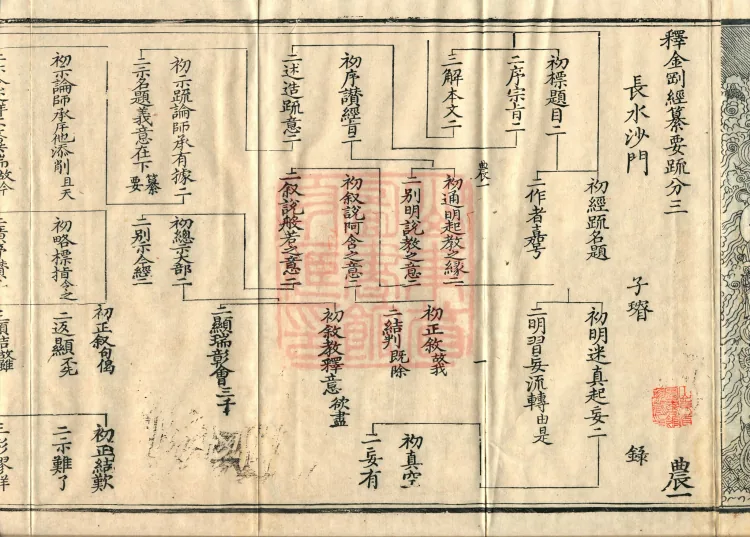 釋金剛經纂要疏分三
長水沙門 子璿 錄
農一
初標題目二
二序宗旨二
三解本文二
初序讃經旨二
二述造疏意二
初示疏論師承有據二
二示名題義意在下纂要
初示論師承序他添削且天
初經疏名題
二作者嘉号
農一
初通明起教之緣二
二別明說教之意二
初叙說阿含之意二
二叙說般若之意二
初總示六部二
二別示今經二
初略標指今之
初明迷真起妄二
二明習妄流轉由是
一
初正叙故我
二結判既除
初敘教釋意欲盡
二顯瑞彰會三千
初正叙句偈
二返顯不死
初真空
二妄有
初正結歎
二示難了